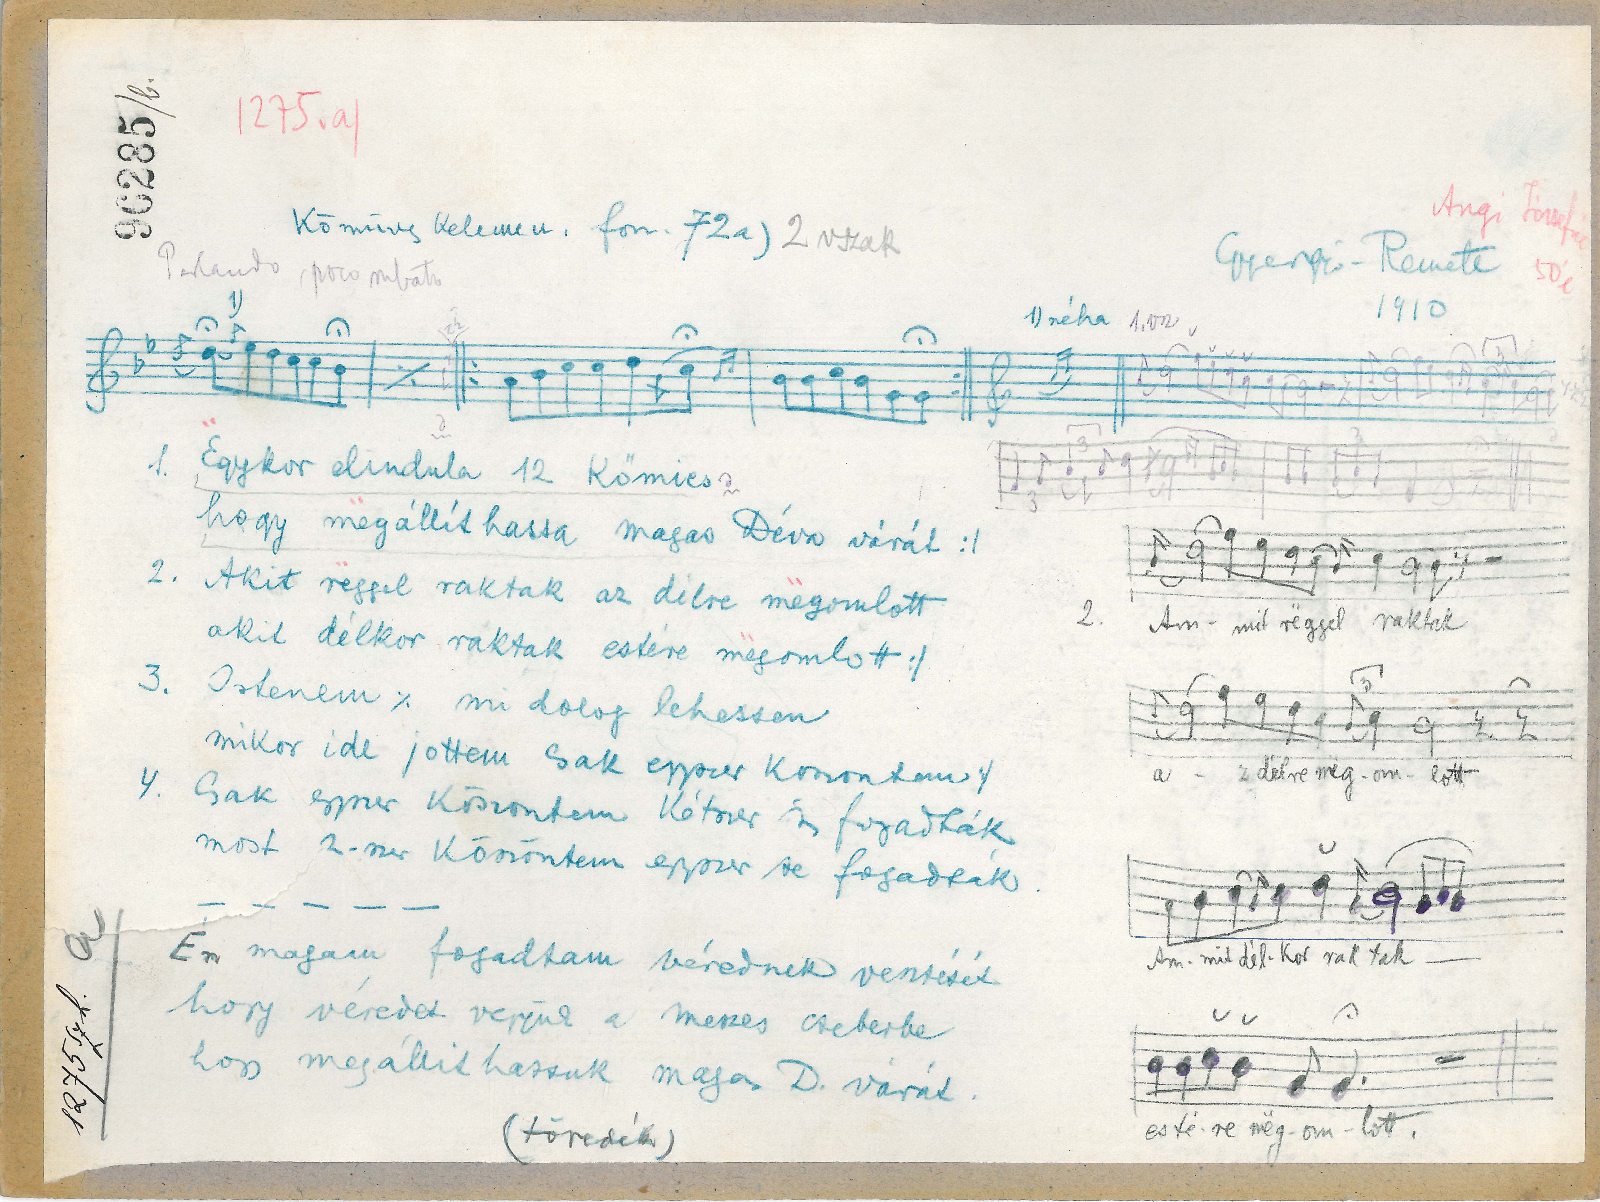 90285/b.
1275.a/
Kőmüves Kelemen. fon. 72a) 2 vszak
Angi Józsefné
50 é
Parlando, poco rubato
Gyergyó-Remete
1910
1)
1) néha 1.vsz.
1. Ëgykor elindula 12 Kőmies
hogy mëgállithassa magas Déva várát :|
2. Akit rëggel raktak az délre mëgomlott
akit délkor raktak estére mëgomlott :|
3. Istenem ٪ mi dolog lehessen
mikor ide jöttem csak eggyszer köszöntem :|
4. Csak egyszer köszöntem kétszer is fogadták
most 2-szer köszöntem egyszer se fogadták.
— — — — —
Én magam fogadtam vérednek vesztését
hogy véredet vegyük a meszes cseberbe
hogy megállithassuk magas D. várát.
(töredék)
2. Am-mit rëggel raktak
a - z délre mëg-om-lott
Am-mit dél-kor rak tak —
esté-re mëg-om-lott.
1275 szh. a